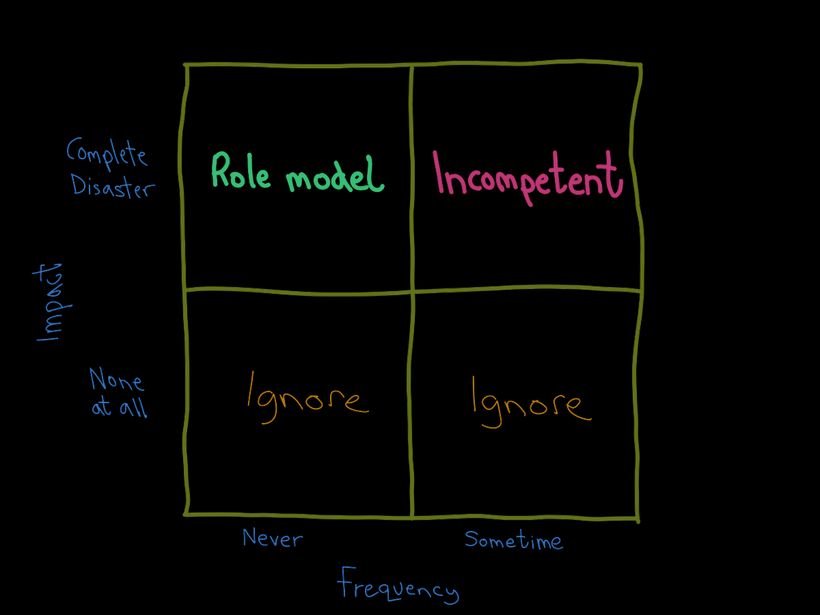 Complete
Disaster
Role model
Incompetent
Impact
None
at all
Ignore
Ignore
Never
Sometime
Frequency